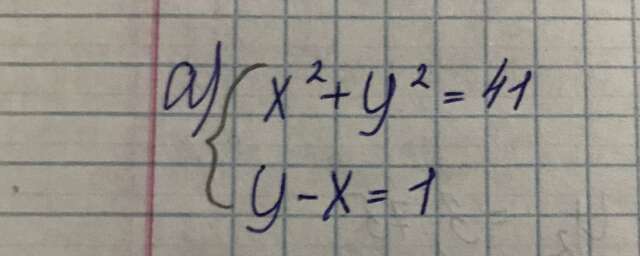 а) { x² + y² = 41
y - x = 1